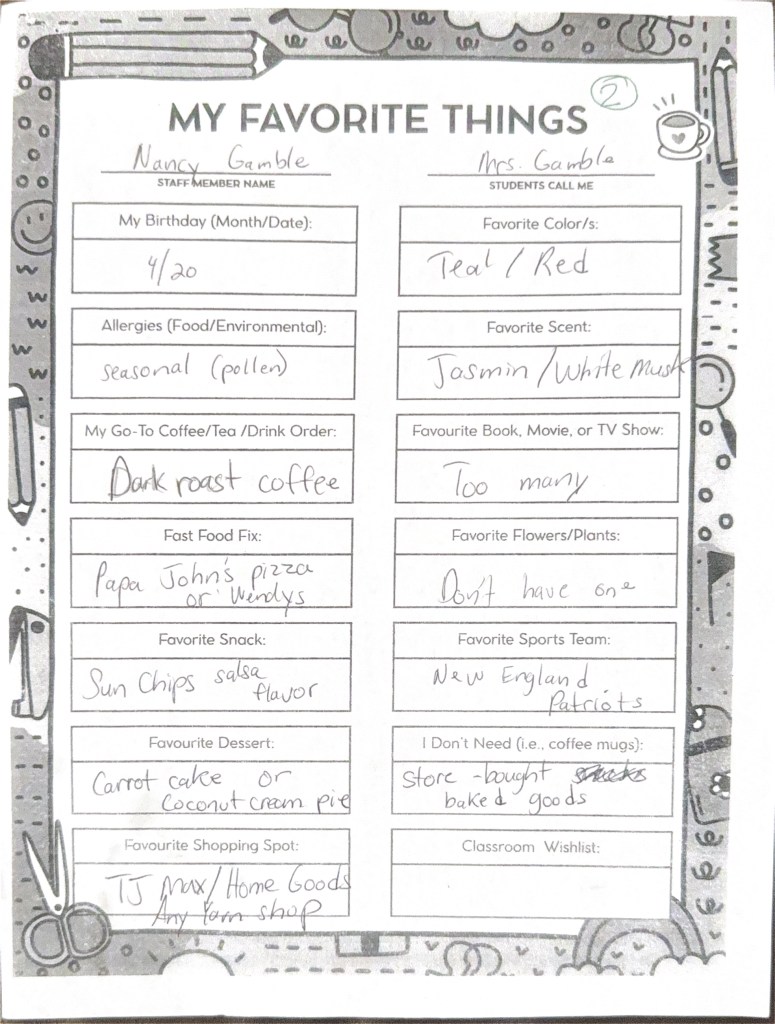 2
MY FAVORITE THINGS
Nancy Gamble
STAFF MEMBER NAME
Mrs. Gamble
STUDENTS CALL ME
My Birthday (Month/Date):
4/20
Favorite Color/s:
Teal / Red
Allergies (Food/Environmental):
seasonal (pollen)
Favorite Scent:
Jasmin / White Musk
My Go-To Coffee/Tea /Drink Order:
Dark roast coffee
Favourite Book, Movie, or TV Show:
Too many
Fast Food Fix:
Papa John's pizza
or Wendys
Favorite Flowers/Plants:
Don't have one
Favorite Snack:
Sun Chips salsa
flavor
Favorite Sports Team:
New England
Patriots
Favourite Dessert:
Carrot cake or
Coconut cream pie
I Don't Need (i.e., coffee mugs):
Store-bought
baked goods
Favourite Shopping Spot:
TJ Max/Home Goods
Any Yarn shop
Classroom Wishlist: